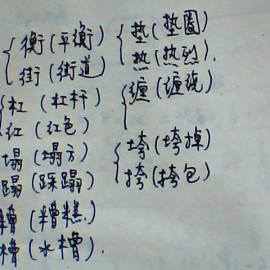 衡(平衡) 垫(垫圈)
街(街道) 热(热烈).
杠(杠杆) 缠(缠绕)
红(红色)
塌(塌方) 垮(垮掉)
蹋(踩蹋) 挎(挎包)
糟(糟糕)
槽(水槽).